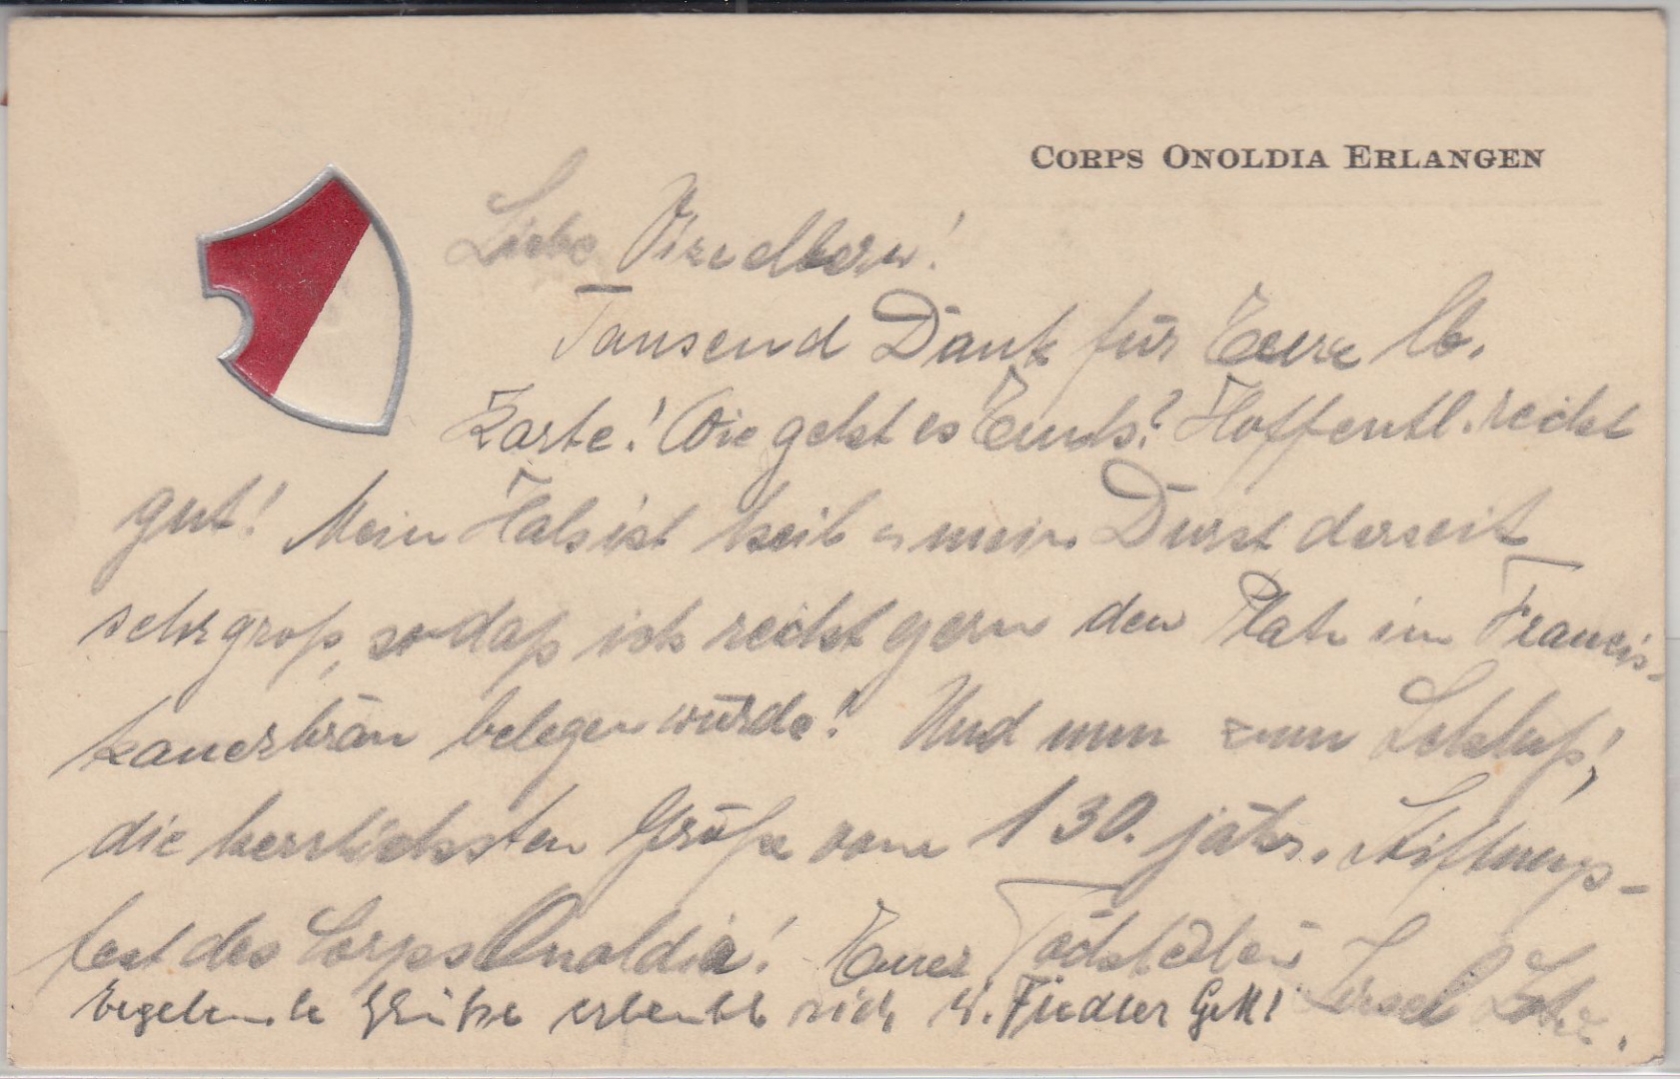 CORPS ONOLDIA ERLANGEN
Liebe
Tausend Dank für Eure lb.
Karte! Wie geht es Euch? Hoffentl. recht
gut! Mein Hals ist heil u. mein Durst derzeit
sehr groß, so daß ich recht gern den Platz im Franzis-
kanerbräu belegen würde! Und nun zum Schluß,
die herrlichsten Grüße vom 130. jähr. Stiftungs-
fest des Corps Onoldia! Euer
Ergebenste Grüße erlaubt sich W. Fiedler